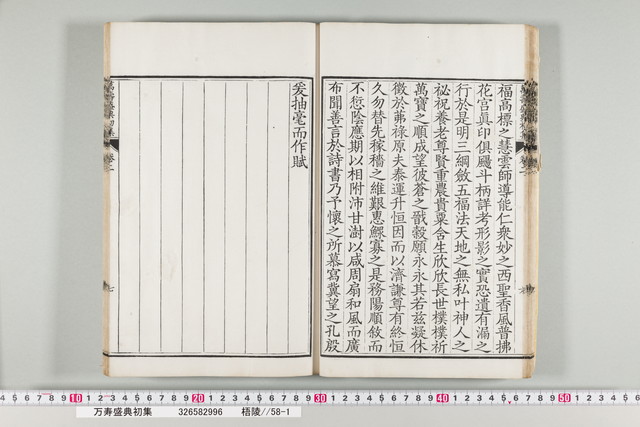 福高標之慧雲師導能仁衆妙之西聖香風普拂
花宫真印俱颺斗柄詳考形影之實恐遺有漏之
行於是明三綱斂五福法天地之無私叶神人之
祕祝養老尊賢重農貴粟含生欣欣長世樸樸祈
萬寶之順成望彼蒼之戩穀願永永其若茲凝休
徵於茀祿原夫泰運升恒因而以濟謙尊有終恒
久勿替先稼穡之維艱惠鰥寡之是務陽順敘而
不愆陰應期以相附沛甘澍以咸周扇和風而廣
布聞善言於詩書乃予懷之所慕寫冀望之孔殷
爰抽毫而作賦
七
万寿盛典初集 326582996 梧陵//58-1